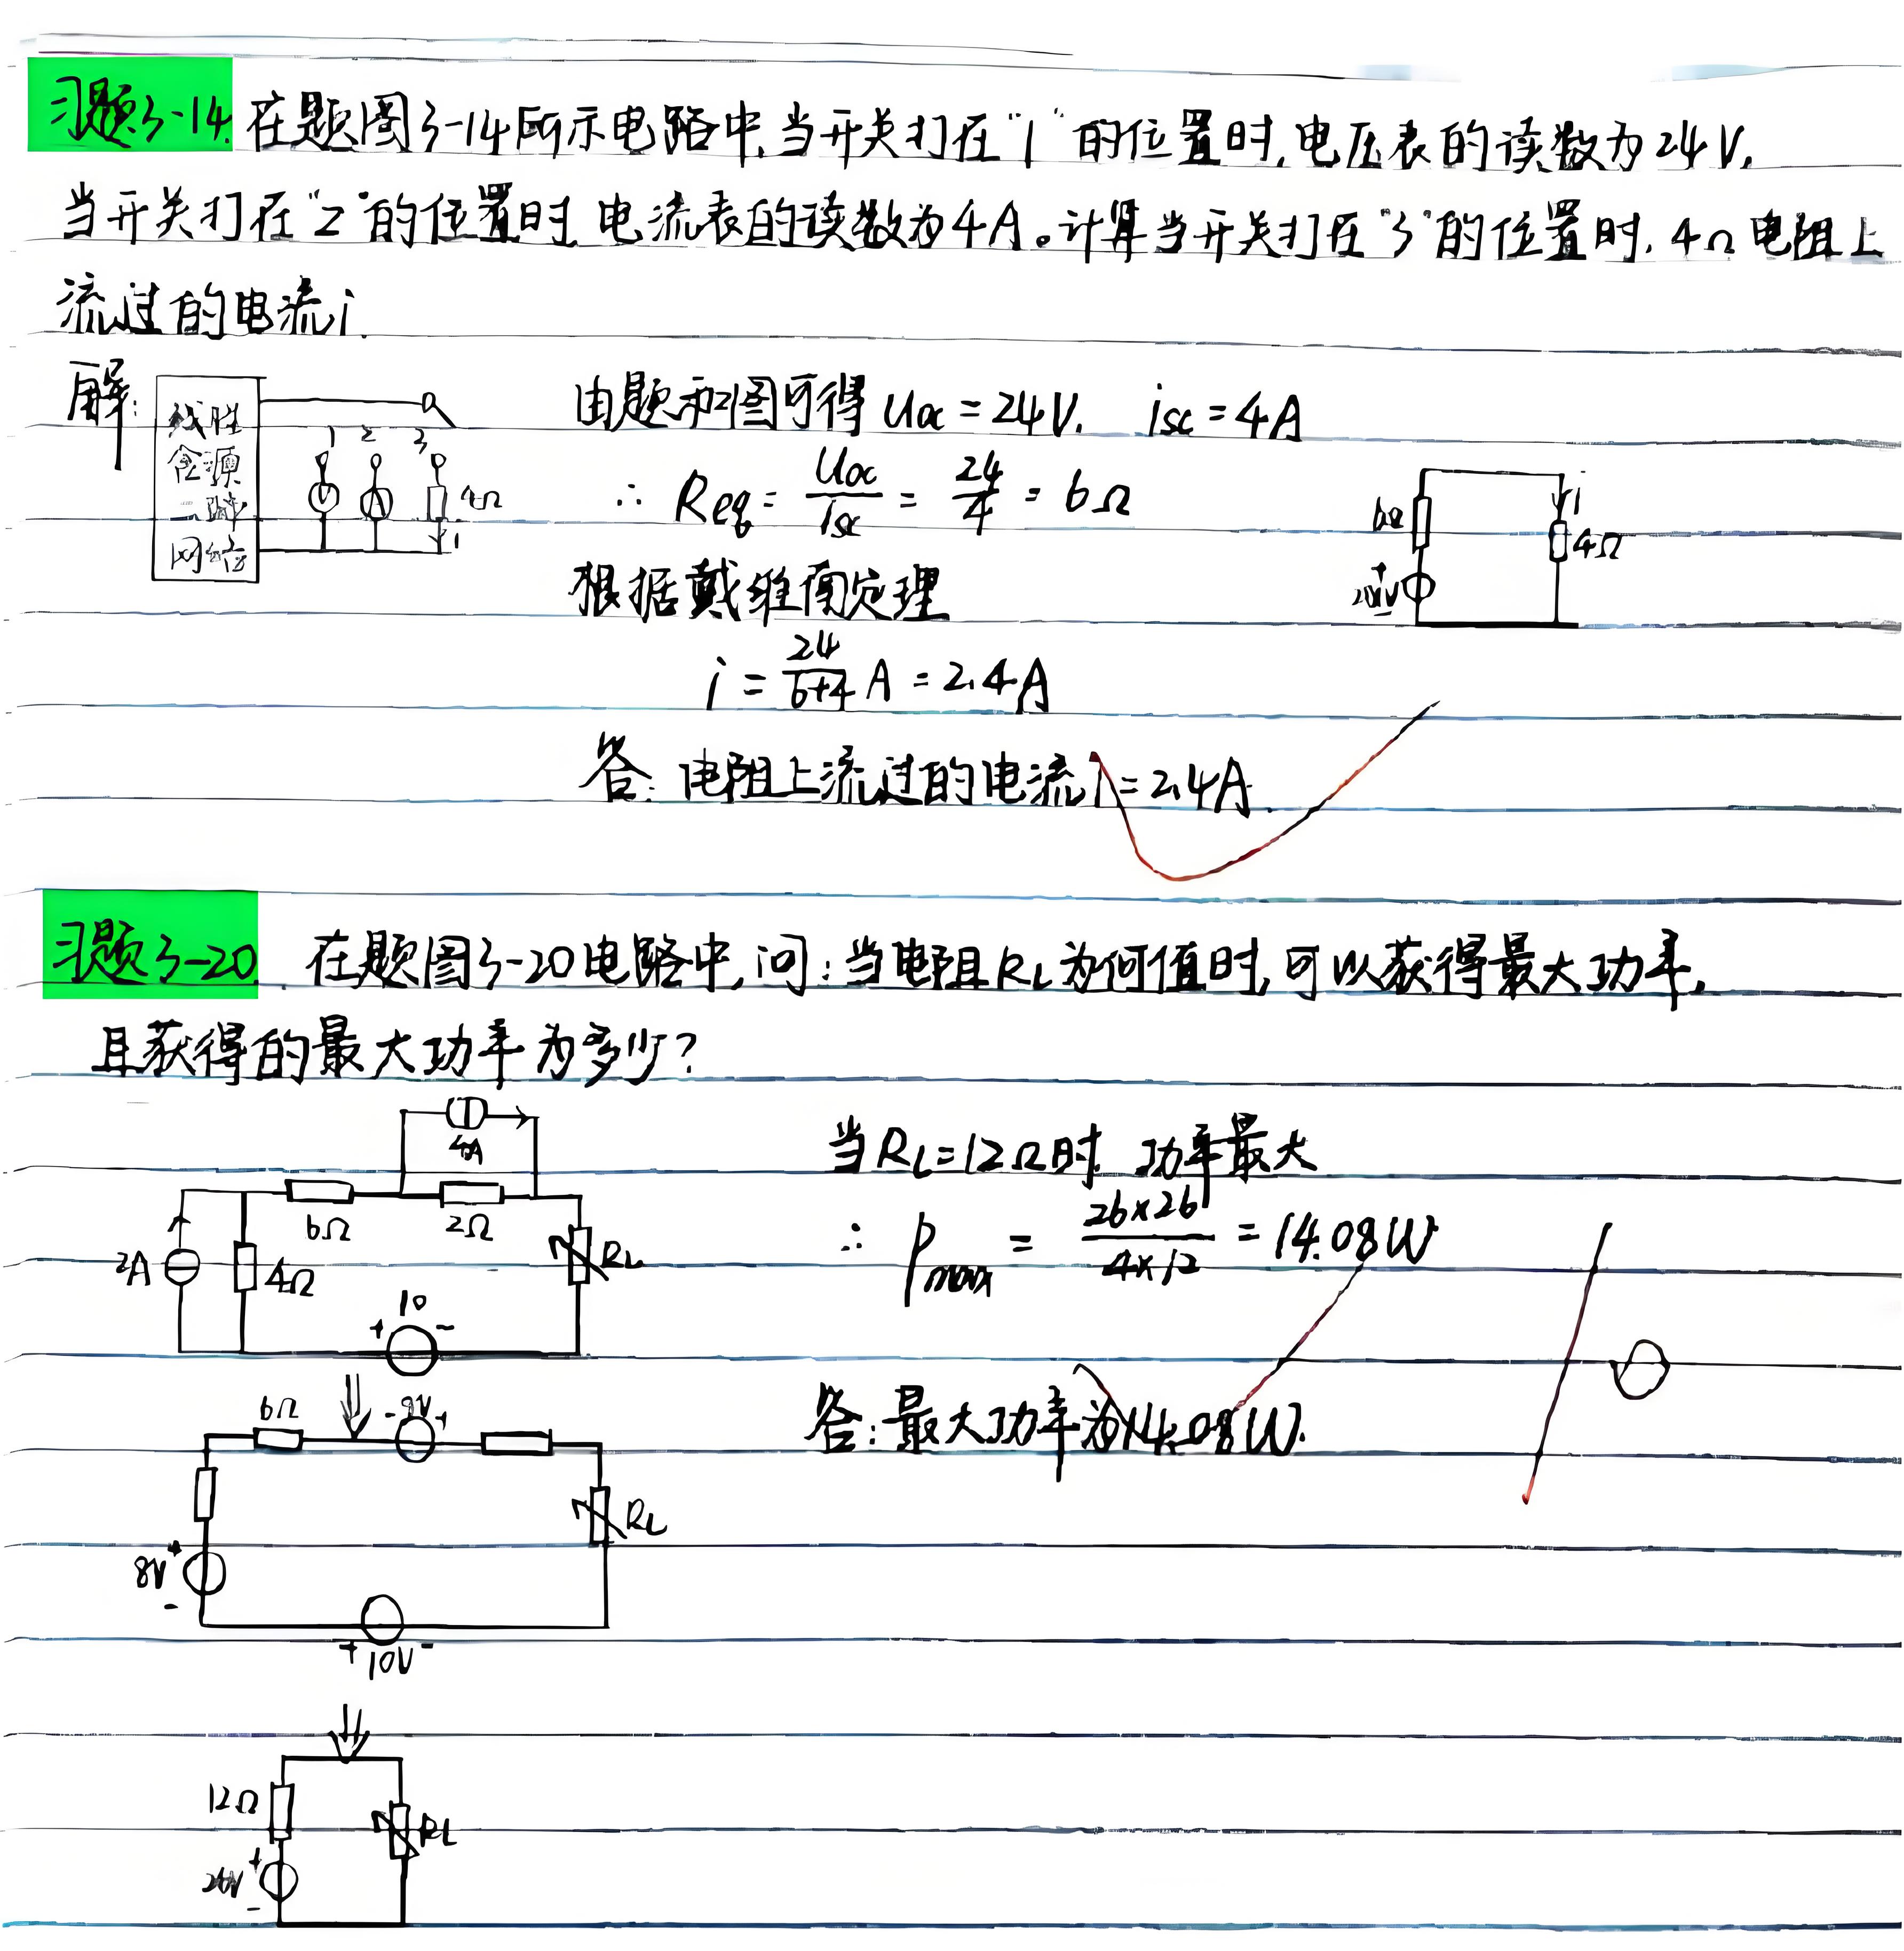 习题3-14. 在题图3-14所示电路中,当开关打在"1"的位置时,电压表的读数为24V,
当开关打在"2"的位置时,电流表的读数为4A。计算当开关打在"3"的位置时,4Ω电阻上
流过的电流i.
解:
线性
含源
二端
网络
1 2 3
4Ω
i
由题和图可得 Uoc = 24V. isc = 4A
∴ Req = Uoc/isc = 24/4 = 6Ω
6Ω
i
4Ω
+
根据戴维南定理
i = 24/(6+4) A = 2.4A
答: 电阻上流过的电流i=2.4A.
习题3-20. 在题图3-20电路中,问:当电阻RL为何值时,可以获得最大功率,
且获得的最大功率为多少?
4A
6Ω 2Ω
2A 4Ω RL
+ 10 -
当RL=12Ω时 功率最大
∴ Pmax = 26×26/4×12 = 14.08W
答:最大功率为14.08W.
6Ω - 8V +
RL
8V + -
+ 10V -
12Ω
RL
26V + -